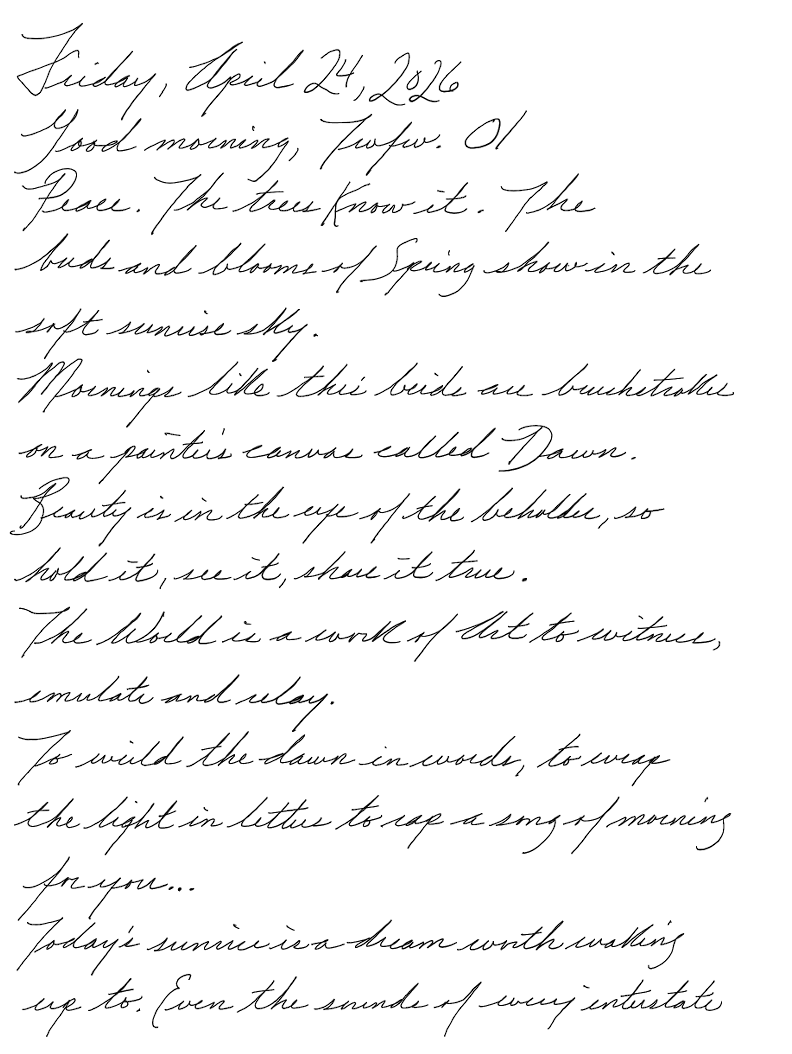 Friday, April 24, 2026
Good morning, Twfw. 01
Peace. The trees know it. The
buds and blooms of Spring show in the
soft sunrise sky.
Mornings like this beide are brushstrokes
on a painter's canvas called Dawn.
Beauty is in the eye of the beholder, so
hold it, see it, share it true.
The World is a work of Art to witness,
emulate and relay.
To wield the dawn in words, to wrap
the light in letters to rap a song of morning
for you...
Today's sunrise is a dream worth waking
up to. Even the sounds of every interstate